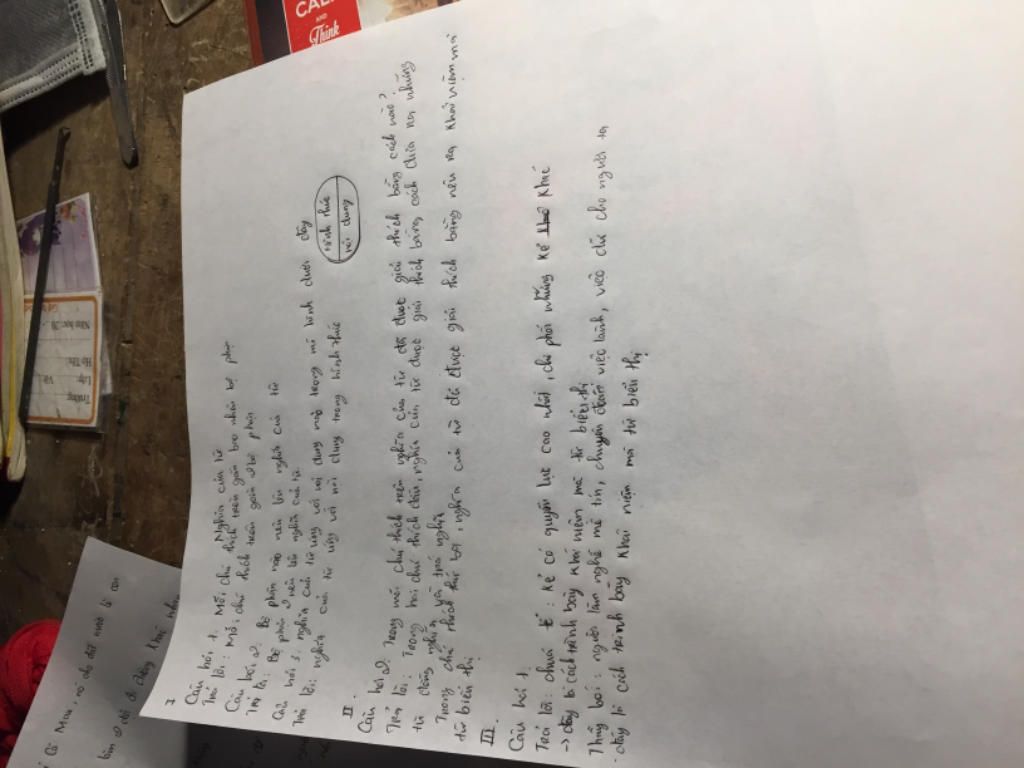 I
Nghĩa của từ
Câu hỏi 1. Mỗi chú thích trên gồm bao nhiêu bộ phận
Trả lời: Mỗi chú thích trên gồm 2 bộ phận
Câu hỏi 2. Bộ phận nào nêu lên nghĩa của từ
Trả lời: Bộ phận 2 nêu lên nghĩa của từ
Câu hỏi 3: nghĩa của từ ứng với nội dung nào trong mô hình dưới đây
Trả lời: nghĩa của từ ứng với nội dung trong hình thức
hình thức
nội dung
II.
Câu hỏi 2: Trong mỗi chú thích trên nghĩa của từ đã được giải thích bằng cách nào?
Trả lời: Trong hai chú thích đầu, nghĩa của từ được giải thích bằng cách đưa ra những
từ đồng nghĩa, trái nghĩa
Trong chú thích thứ ba, nghĩa của từ đã được giải thích bằng nêu ra khái niệm mà
từ biểu thị
III.
Câu hỏi 1.
Trả lời: chúa tể: kẻ có quyền lực cao nhất, chi phối những kẻ khác
→ đây là cách trình bày khái niệm mà từ biểu thị
Thầy bói: người làm nghề mê tín, chuyên đoán việc lành, việc dữ cho người ta
đây là cách trình bày khái niệm mà từ biểu thị
CAL
AND
Think
Trường:
Lớp:
Họ Tên:
Năm học: 20